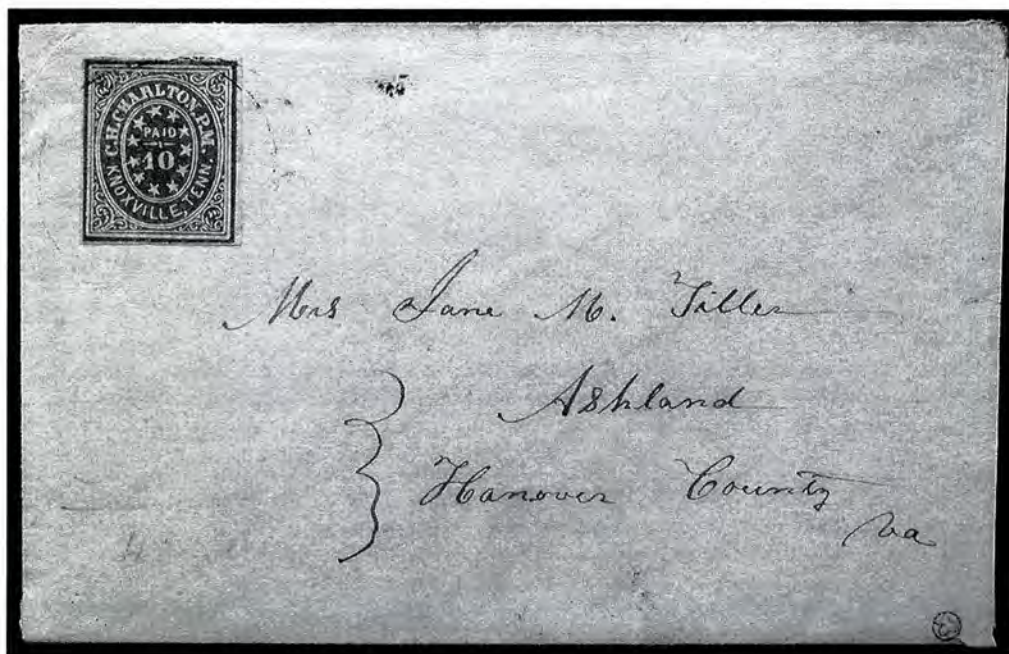 C.H. CHARLTON. P.M.
PAID
10
KNOXVILLE, TENN.
Mrs Jane M. Tiller
Ashland
Hanover County
Va